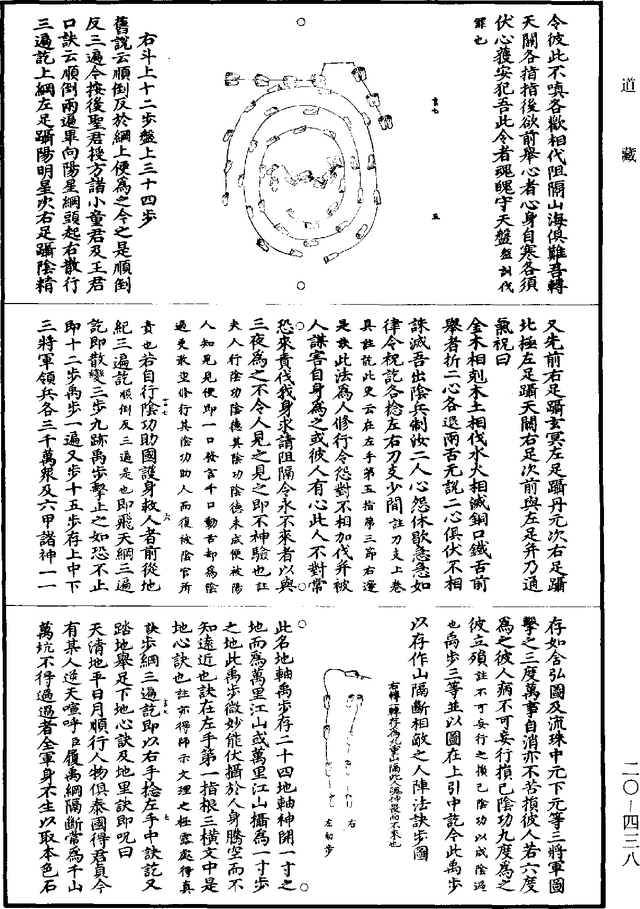 道藏
令彼此不嗔各歡相代阻隔山海俱難吾轉
天關各指指後欲前舉心者心身自寒各須
伏心獲安犯吾此令者魂魄守天盤
罪也
右斗上十二步盤上三十四步
舊說云順倒反於綱上便為之令之是順倒
反三遍令按後聖君授方諸小童君及王君
口訣云順倒兩遍畢向陽星綱頭起右散行
三遍訖上綱左足躡陽明星次右足躡陰精
又先前右足躡玄冥左足躡丹元次右足躡
北極左足躡天關右足次前與左足并乃通
氣祝曰
金木相剋木土相伐水火相滅銅口鐵舌前
舉者折二心各退兩舌无說二心俱伏不相
誅滅吾出陰兵制汝二人心怨休歇急急如
律令祝訖各捻左右刀支少間註刀支上卷
具註訖此更云在左手第五指第三節右邊
是訣此法為人修行令怨對不相加伐并被
人謀害自身為之或彼人有心此人不對常
恐來責伐我身求請阻隔令永不來者以與
三夜為之不令人見之見之即不神驗也註
夫人行陰功陰德其陰功陰德未成便被陽
人知見見便即一口發言千口動舌却為陰
過更敢望修行其陰功助人而復被陰官所
責也若自行陰功助國護身救人者前從地
紀三遍訖順倒反三遍是也即飛天綱三遍
訖即散變三步九跡禹步擊止之如恐不止
即十二步禹步一遍又步十五步存上中下
三將軍領兵各三千萬眾及六甲諸神一一
存如含弘圖及流珠中元下元等三將軍圖
擊之三度萬事自消亦不苦損彼人若六度
為之彼人病不可妄行損已陰功九度為之
彼立殞註不可妄行之損已陰功以成陰過
也禹步三等並以圖在上引中訖今此禹步
以存作山隔斷相敵之人陣法訣步圖
右
左初步
此名地軸禹步存二十四地軸神開一寸之
地而為萬里江山或萬里江山攝為一寸步
之地此禹步微妙能伏攝於人身騰空而不
知遠近也訣在左手第一指根三橫文中是
地心訣也註亦得師示文理之極露處得真
訣步綱三遍訖即以右手捻左手中訣訖又
踏地舉足下地心訣及地里訣即呪曰
天清地平日月順行人物俱泰國得君真今
有某人逆天喧呼臣履禹綱隔斷常為千山
萬坑不得過過者全軍身不生以取本色石
二〇—四三八